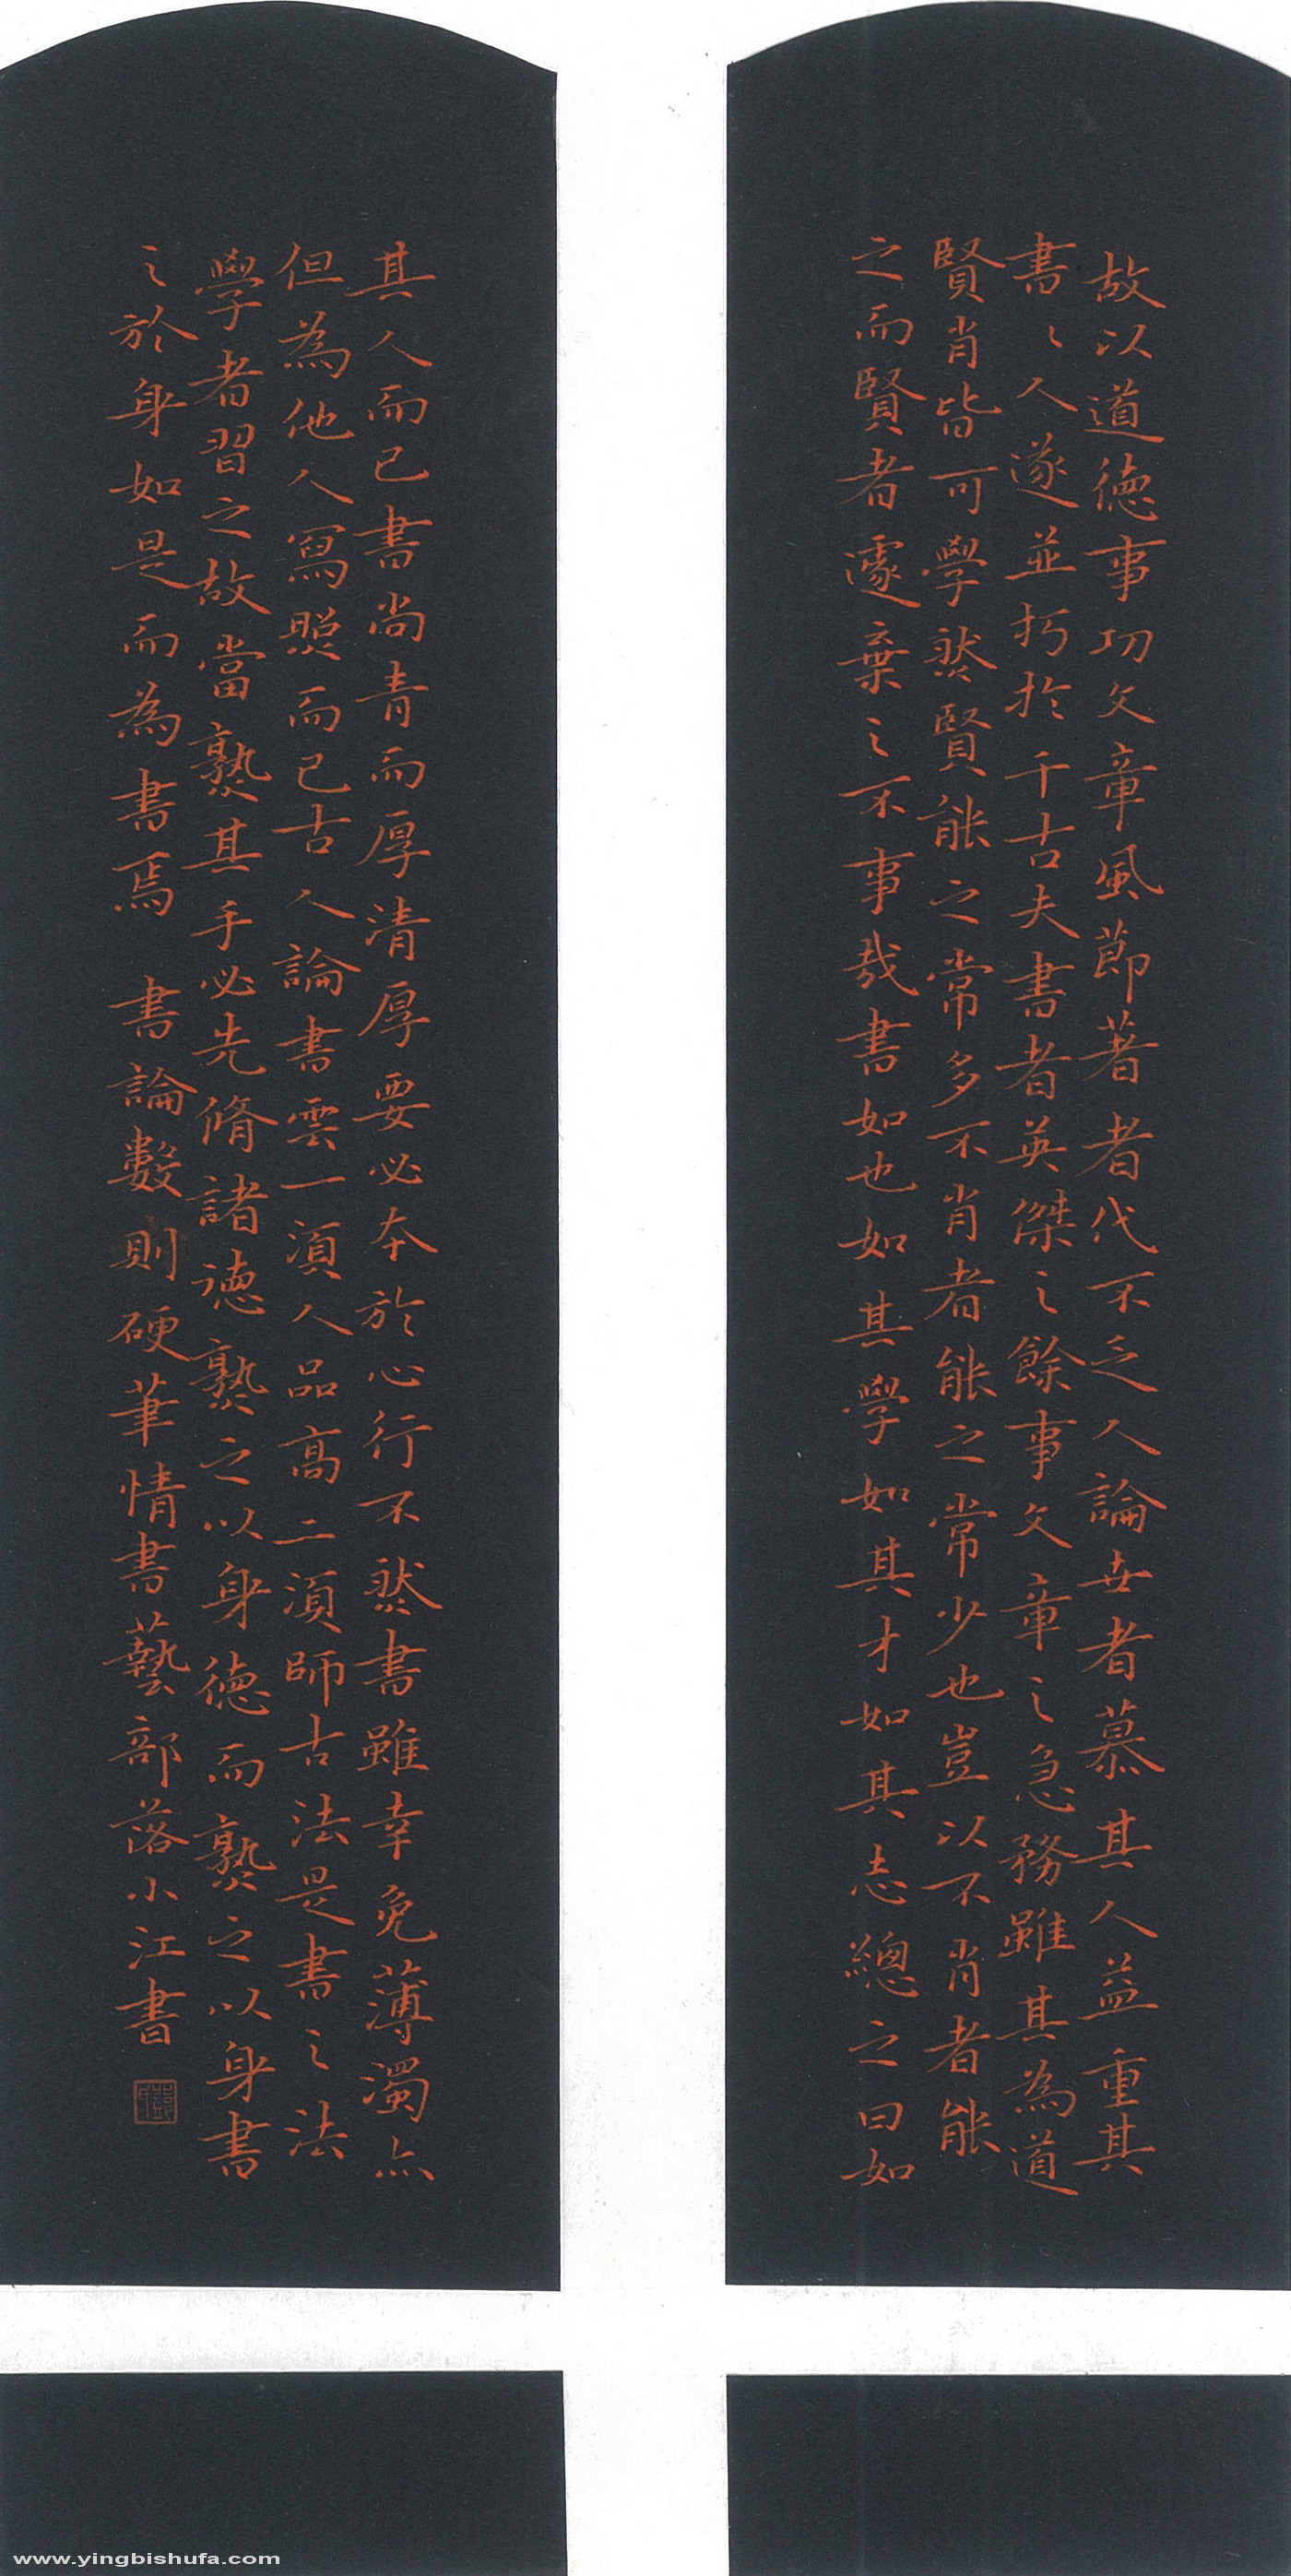 故以道德事功文章風節著者代不乏人論世者慕其人益重其
書々人遂並朽於千古夫書者英傑之餘事文章之急務雖其為道
賢肖皆可學然賢能之常多不肖者能之常少也豈以不肖者能
之而賢者遽棄之不事哉書如也如其學如其才如其志總之曰如
其人而已書尚青而厚清厚要必本於心行不然書雖幸免薄濁亦
但為他人寫照而已古人論書雲一須人品高二須師古法是書之法
學者習之故當熟其手必先脩諸德熟之以身德而熟之以身書
之於身如是而為書焉 書論數則硬筆情書藝部落小江書
www.yingbishufa.com